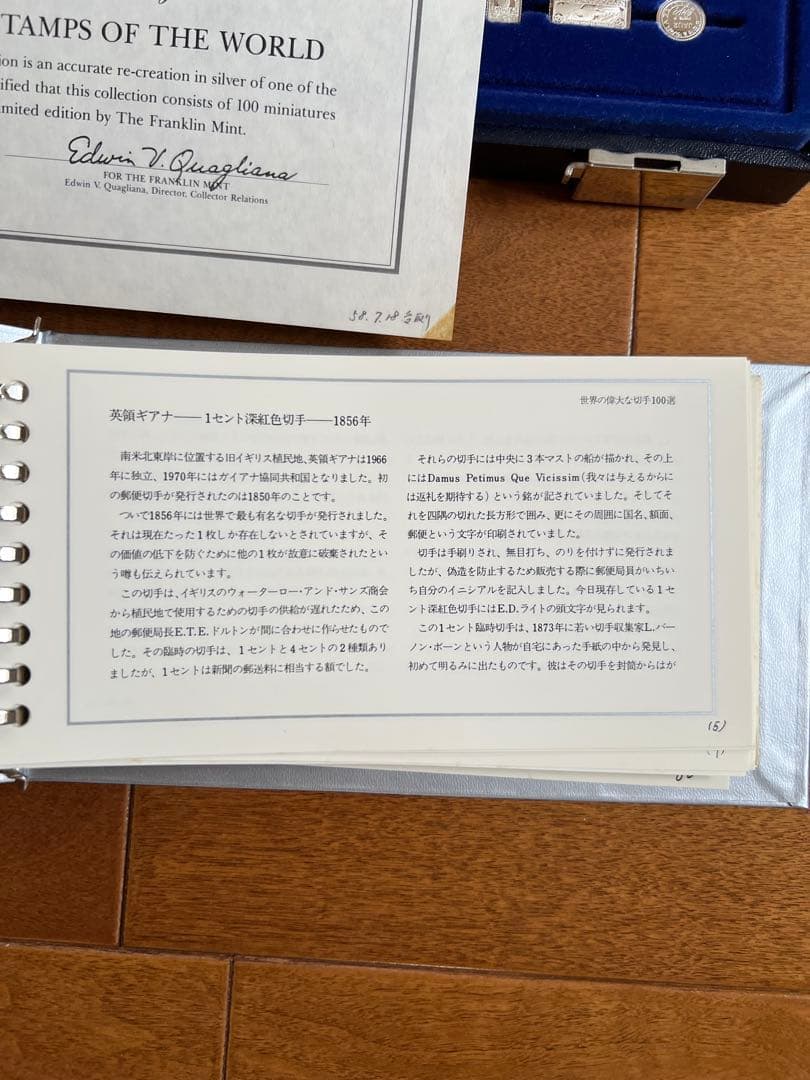 TAMPS OF THE WORLD
ion is an accurate re-creation in silver of one of the
ified that this collection consists of 100 miniatures
imited edition by The Franklin Mint.
Edwin V. Quagliana
FOR THE FRANKLIN MINT
Edwin V. Quagliana, Director, Collector Relations
58.7.18
世界の偉大な切手100選
英領ギアナ——1セント深紅色切手——1856年
南米北東岸に位置する旧イギリス植民地、英領ギアナは1966
年に独立、1970年にはガイアナ協同共和国となりました。初
の郵便切手が発行されたのは1850年のことです。
ついで1856年には世界で最も有名な切手が発行されました。
それは現在たった1枚しか存在しないとされていますが、そ
の価値の低下を防ぐために他の1枚が故意に破棄されたとい
う噂も伝えられています。
この切手は、イギリスのウォーターロー・アンド・サンズ商会
から植民地で使用するための切手の供給が遅れたため、この
地の郵便局長E.T.E.ドルトンが間に合わせに作らせたもので
した。その臨時の切手は、1セントと4セントの2種類あり
ましたが、1セントは新聞の郵送料に相当する額でした。
それらの切手には中央に3本マストの船が描かれ、その上
にはDamus Petimus Que Vicissim(我々は与えるからに
は返礼を期待する)という銘が記されていました。そしてそ
れを四隅の切れた長方形で囲み、更にその周囲に国名、額面、
郵便という文字が印刷されていました。
切手は手刷りされ、無目打ち、のりを付けずに発行されま
したが、偽造を防止するため販売する際に郵便局員がいちい
ち自分のイニシアルを記入しました。今日現存している1セ
ント深紅色切手にはE.D.ライトの頭文字が見られます。
この1セント臨時切手は、1873年に若い切手収集家L.バー
ノン・ボーンという人物が自宅にあった手紙の中から発見し、
初めて明るみに出たものです。彼はその切手を封筒からはが
(5)